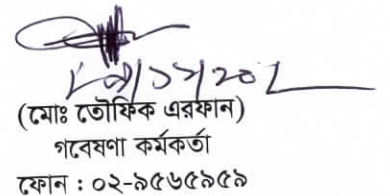 (মোঃ তৌফিক এরফান)
গবেষণা কর্মকর্তা
ফোন : ০২-৯৫৬৫৯৫৯